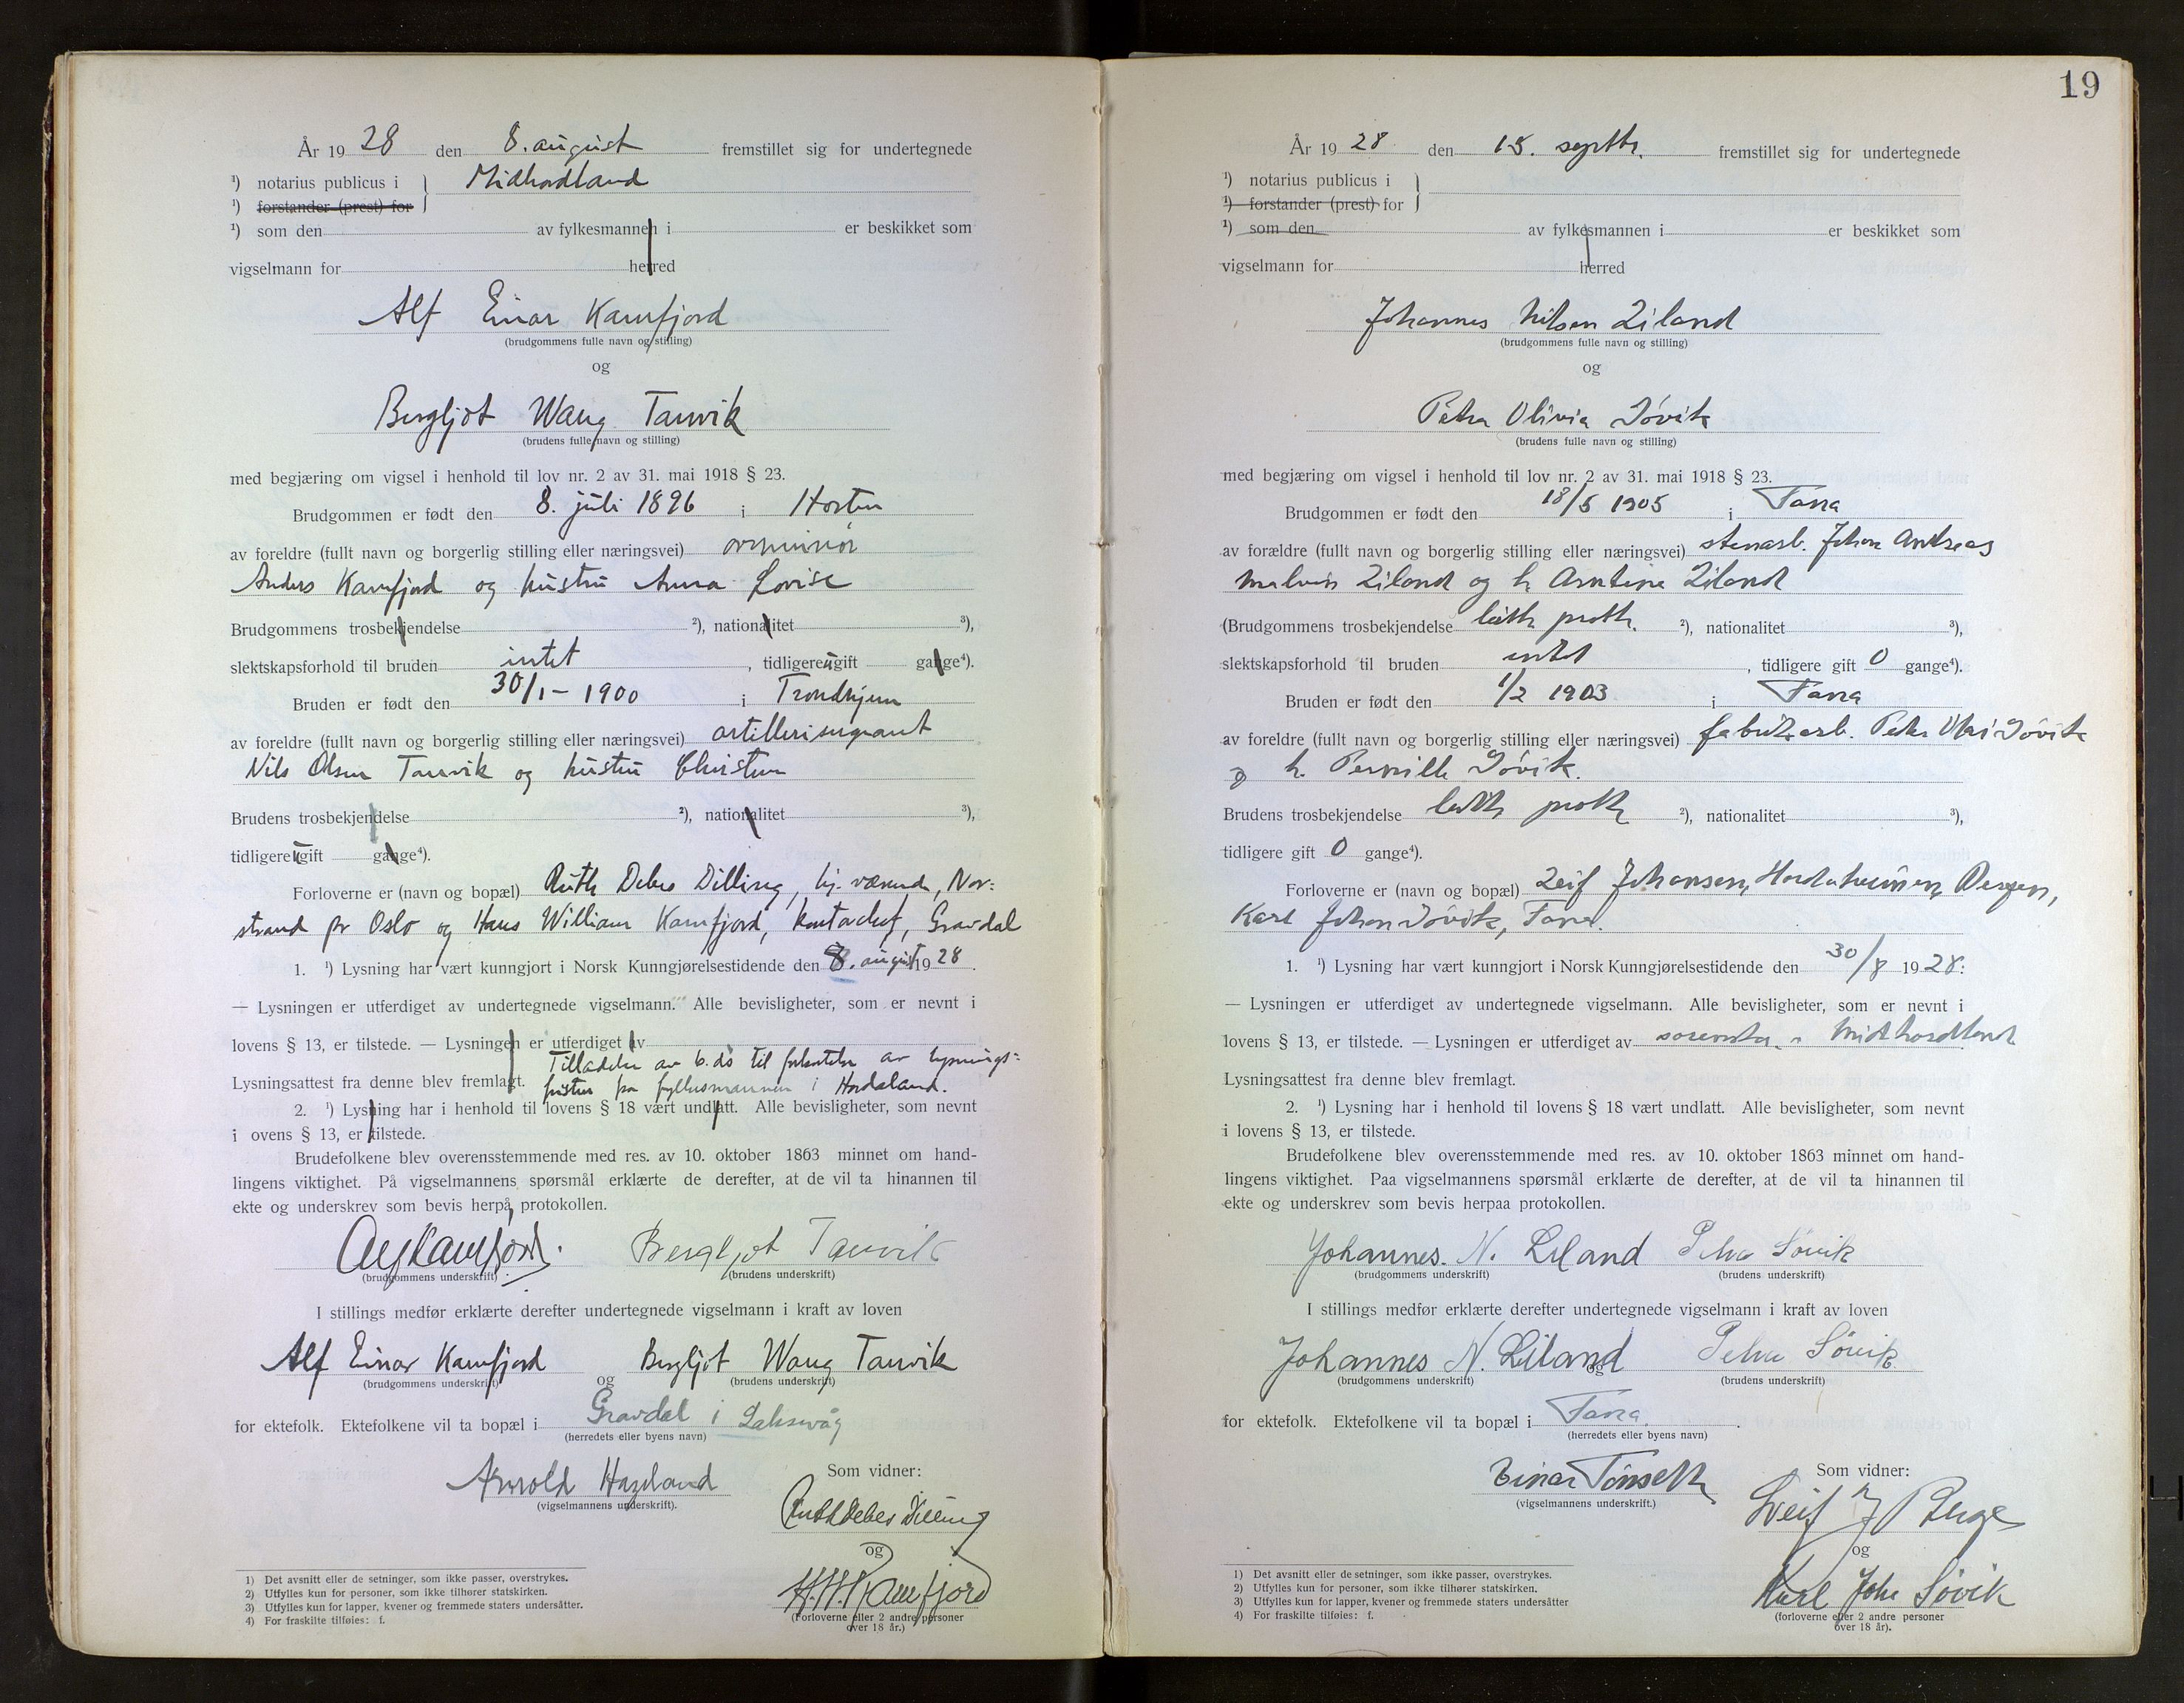 År 1928 den 8. august fremstillet sig for undertegnede
¹) notarius publicus i } Midhordland
¹) forstander (prest) for
¹) som den av fylkesmannen i er beskikket som
vigselmann for herred
Alf Einar Kamfjord
(brudgommens fulle navn og stilling)
og
Bergljot Wang Tanvik
(brudens fulle navn og stilling)
med begjæring om vigsel i henhold til lov nr. 2 av 31. mai 1918 § 23.
Brudgommen er født den 8. juli 1896 i Horten
av foreldre (fullt navn og borgerlig stilling eller næringsvei)
Anders Kamfjord og hustru Anna Lovise
Brudgommens trosbekjendelse ²), nationalitet ³),
slektskapsforhold til bruden intet, tidligere ugift gange⁴).
Bruden er født den 30/1 - 1900 i Trondhjem
av foreldre (fullt navn og borgerlig stilling eller næringsvei) artillerisergeant
Nils Olsen Tanvik og hustru Christen
Brudens trosbekjendelse ²), nationalitet ³),
tidligere ugift gange⁴).
Forloverne er (navn og bopæl) Ruth Debes Dilling, hj. værende, Nor=
strand pr Oslo og Hans William Kamfjord, kontorchef, Gravdal
1. ¹) Lysning har vært kunngjort i Norsk Kunngjørelsestidende den 8. august 1928.
— Lysningen er utferdiget av undertegnede vigselmann. Alle bevisligheter, som er nevnt i
lovens § 13, er tilstede. — Lysningen er utferdiget av
Tilladelse av 6. ds til forkortelse av lysnings=
Lysningsattest fra denne blev fremlagt. fristen fra fylkesmannen i Hordaland.
2. ¹) Lysning har i henhold til lovens § 18 vært undlatt. Alle bevisligheter, som nevnt
i ovens § 13, er tilstede.
Brudefolkene blev overensstemmende med res. av 10. oktober 1863 minnet om hand-
lingens viktighet. På vigselmannens spørsmål erklærte de derefter, at de vil ta hinannen til
ekte og underskrev som bevis herpå protokollen.
Alf Kamfjord. Bergljot Tanvik
(brudgommens underskrift) (brudens underskrift)
I stillings medfør erklærte derefter undertegnede vigselmann i kraft av loven
Alf Einar Kamfjord og Bergljot Wang Tanvik
(brudgommens underskrift) (brudens underskrift)
for ektefolk. Ektefolkene vil ta bopæl i Gravdal i Laksevåg
(herredets eller byens navn)
Arnold Hazeland Som vidner:
(vigselmannens underskrift).
Ruth Debes Dilling
og
H. W. Kamfjord
(Forloverne eller 2 andre personer
over 18 år.)
1) Det avsnitt eller de setninger, som ikke passer, overstrykes.
2) Utfylles kun for personer, som ikke tilhører statskirken.
3) Utfylles kun for lapper, kvener og fremmede staters undersåtter.
4) For fraskilte tilføies: f.
19
År 1928 den 15. septbr. fremstillet sig for undertegnede
¹) notarius publicus i }
¹) forstander (prest) for
¹) som den av fylkesmannen i er beskikket som
vigselmann for herred
Johannes Nilsen Liland
(brudgommens fulle navn og stilling)
og
Petra Olivia Søvik
(brudens fulle navn og stilling)
med begjæring om vigsel i henhold til lov nr. 2 av 31. mai 1918 § 23.
Brudgommen er født den 18/5 1905 i Fana
av forældre (fullt navn og borgerlig stilling eller næringsvei) stenarb. Johan Andreas
Malvin Liland og h. Arntine Liland
(Brudgommens trosbekjendelse luth. proth. ²), nationalitet ³),
slektskapsforhold til bruden intet, tidligere gift 0 gange⁴).
Bruden er født den 1/2 1903 i Fana
av foreldre (fullt navn og borgerlig stilling eller næringsvei) fabrikarb. Peder Søvik
og h. Pernille Søvik.
Brudens trosbekjendelse luth. proth ²), nationalitet ³),
tidligere gift 0 gange⁴).
Forloverne er (navn og bopæl) Leif Johansen, Hordaheimen, Bergen,
Karl Johan Søvik, Fana.
1. ¹) Lysning har vært kunngjort i Norsk Kunngjørelsestidende den 30/8 1928.
— Lysningen er utferdiget av undertegnede vigselmann. Alle bevisligheter, som er nevnt i
lovens § 13, er tilstede. — Lysningen er utferdiget av sorenskr. i Midthordland
Lysningsattest fra denne blev fremlagt.
2. ¹) Lysning har i henhold til lovens § 18 vært undlatt. Alle bevisligheter, som nevnt
i lovens § 13, er tilstede.
Brudefolkene blev overensstemmende med res. av 10. oktober 1863 minnet om hand-
lingens viktighet. Paa vigselmannens spørsmål erklærte de derefter, at de vil ta hinannen til
ekte og underskrev som bevis herpaa protokollen.
Johannes. N. Liland Petra Søvik
(brudgommens underskrift) (brudens underskrift)
I stillings medfør erklærte derefter undertegnede vigselmann i kraft av loven
Johannes N. Liland og Petra Søvik
(brudgommens underskrift) (brudens underskrift)
for ektefolk. Ektefolkene vil ta bopæl i Fana.
(herredets eller byens navn)
Einar Tønseth Som vidner:
(vigselmannens underskrift.)
Leif J Berge
og
Karl Joha Søvik
(forloverne eller 2 andre personer
over 18 år).
1) Det avsnitt eller de setninger, som ikke passer, overstrykes.
2) Utfylles kun for personer, som ikke tilhører statskirken.
3) Utfylles kun for lapper, kvener og fremmede staters undersåtter
4) For fraskilte tilføies: f.